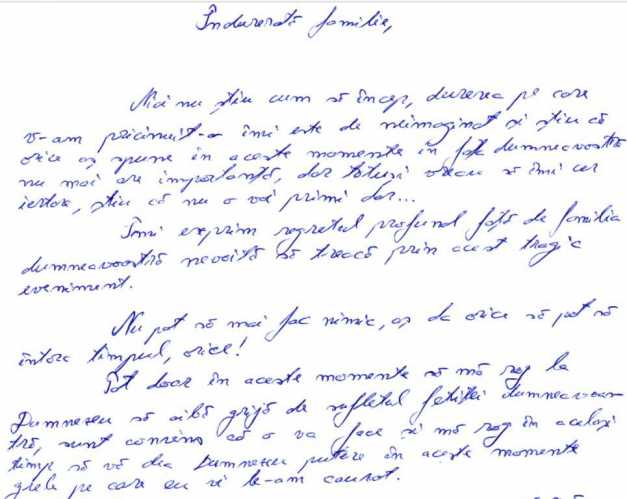 Îndurerată familie,
Mai nu știu cum să încep, durerea pe care
v-am pricinuit-o îmi este de neimaginat și știu că
orice aș spune în aceste momente în fața dumneavoastră
nu mai are importanță, dar totuși vreau să îmi cer
iertare, știu că nu o voi primi dar...
Îmi exprim regretul profund față de familia
dumneavoastră nevoită să treacă prin acest tragic
eveniment.
Nu pot să mai fac nimic, aș da orice să pot să
întorc timpul, orice!
Pot doar în aceste momente să mă rog la
Dumnezeu să aibă grijă de sufletul fetiței dumneavoas-
tră, sunt convins că o va face și mă rog în același
timp să vă dea Dumnezeu putere în aceste momente
grele pe care eu vi le-am cauzat.